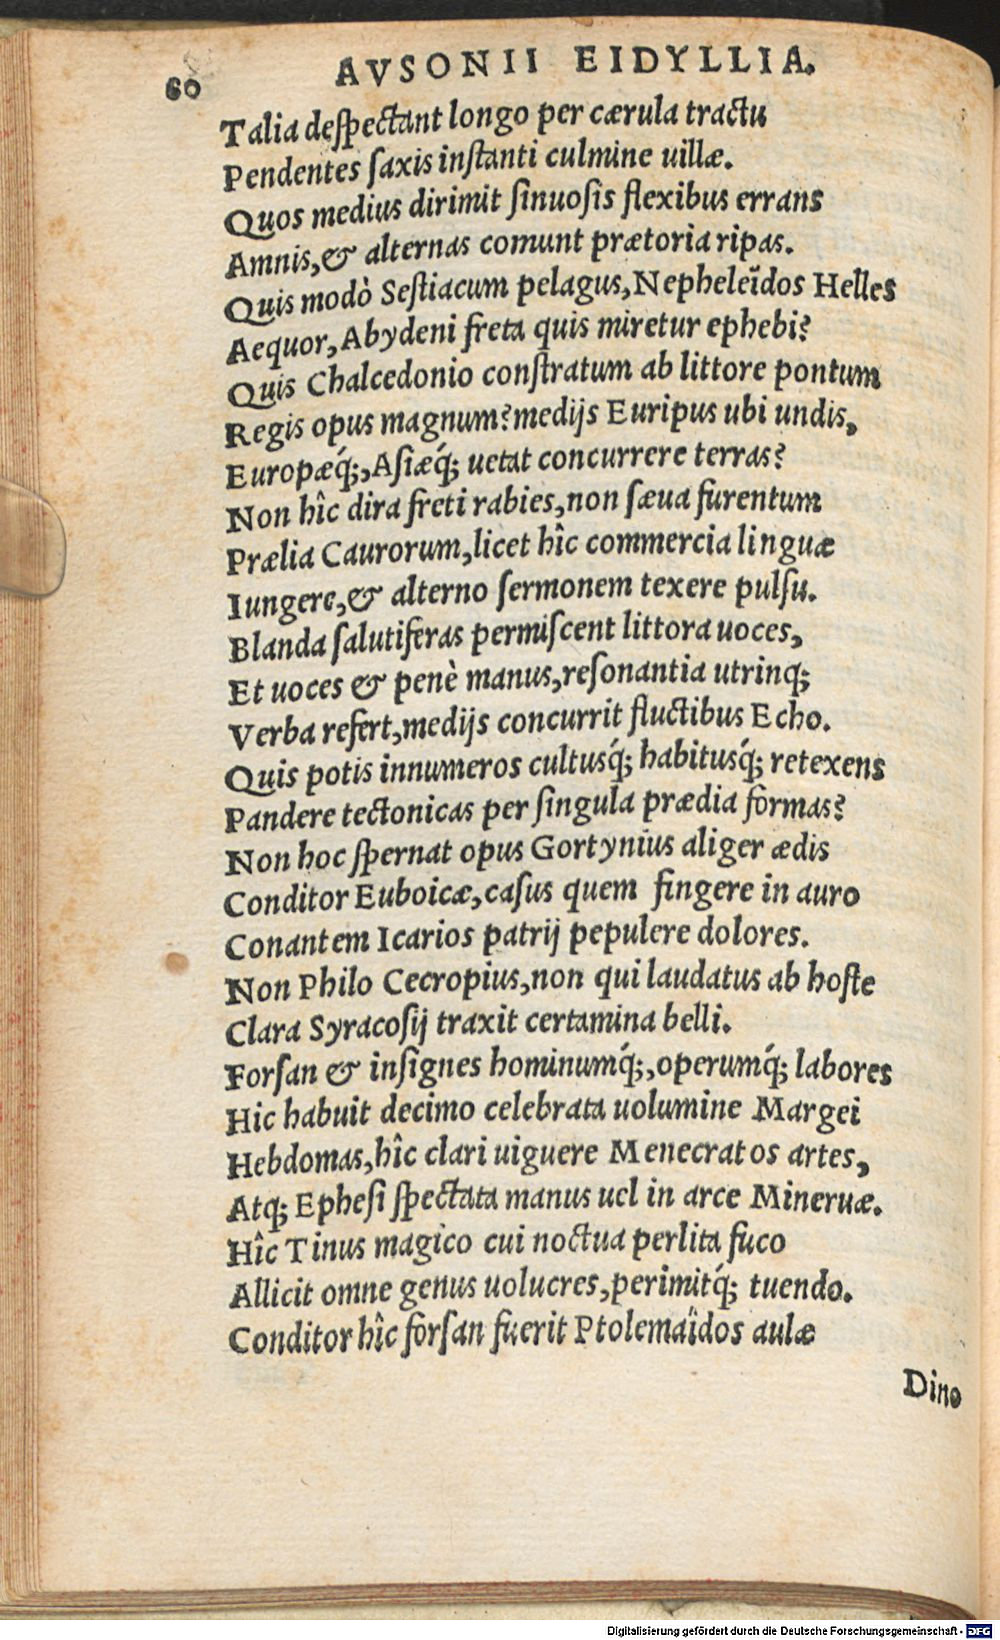 60
AVSONII EIDYLLIA.
Talia deſpectant longo per cærula tractu
Pendentes ſaxis inſtanti culmine uillæ.
Quos medius dirimit ſinuoſis flexibus errans
Amnis,& alternas comunt prætoria ripas.
Quis modò Seſtiacum pelagus,Nepheleïdos Helles
Aequor,Abydeni freta quis miretur ephebi?
Quis Chalcedonio conſtratum ab littore pontum
Regis opus magnum?medijs Euripus ubi undis,
Europæq́;,Aſiæq́; uetat concurrere terras?
Non hîc dira freti rabies,non ſæua furentum
Prælia Caurorum,licet hîc commercia linguæ
Iungere,& alterno ſermonem texere pulſu.
Blanda ſalutiferas permiſcent littora uoces,
Et uoces & penè manus,reſonantia utrinq;
Verba refert,medijs concurrit fluctibus Echo.
Quis potis innumeros cultusq́; habitusq́; retexens
Pandere tectonicas per ſingula prædia formas?
Non hoc ſpernat opus Gortynius aliger ædis
Conditor Euboicæ,caſus quem fingere in auro
Conantem Icarios patrij pepulere dolores.
Non Philo Cecropius,non qui laudatus ab hoſte
Clara Syracoſij traxit certamina belli.
Forſan & inſignes hominumq́;,operumq́; labores
Hic habuit decimo celebrata uolumine Margei
Hebdomas,hîc clari uiguere Menecratos artes,
Atq; Epheſi ſpectata manus uel in arce Mineruæ.
Hîc Tinus magico cui noctua perlita fuco
Allicit omne genus uolucres,perimitq́; tuendo.
Conditor hîc forſan fuerit Ptolemaïdos aulæ
Dino
Digitalisierung gefördert durch die Deutsche Forschungsgemeinschaft - DFG